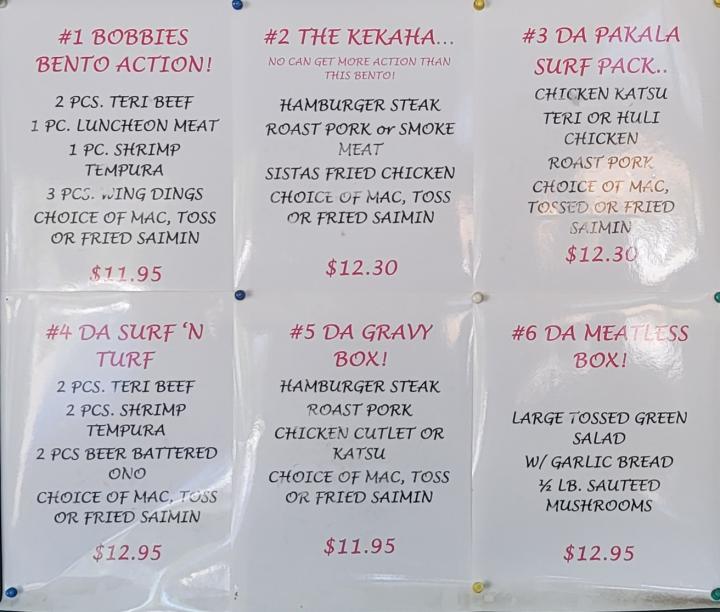 #1 BOBBIES
BENTO ACTION!
2 PCS. TERI BEEF
1 PC. LUNCHEON MEAT
1 PC. SHRIMP
TEMPURA
3 PCS. WING DINGS
CHOICE OF MAC, TOSS
OR FRIED SAIMIN
$11.95
#2 THE KEKAHA...
NO CAN GET MORE ACTION THAN
THIS BENTO!
HAMBURGER STEAK
ROAST PORK or SMOKE
MEAT
SISTAS FRIED CHICKEN
CHOICE OF MAC, TOSS
OR FRIED SAIMIN
$12.30
#3 DA PAKALA
SURF PACK..
CHICKEN KATSU
TERI OR HULI
CHICKEN
ROAST PORK
CHOICE OF MAC,
TOSSED OR FRIED
SAIMIN
$12.30
#4 DA SURF 'N
TURF
2 PCS. TERI BEEF
2 PCS. SHRIMP
TEMPURA
2 PCS BEER BATTERED
ONO
CHOICE OF MAC, TOSS
OR FRIED SAIMIN
$12.95
#5 DA GRAVY
BOX!
HAMBURGER STEAK
ROAST PORK
CHICKEN CUTLET OR
KATSU
CHOICE OF MAC, TOSS
OR FRIED SAIMIN
$11.95
#6 DA MEATLESS
BOX!
LARGE TOSSED GREEN
SALAD
W/ GARLIC BREAD
½ LB. SAUTEED
MUSHROOMS
$12.95